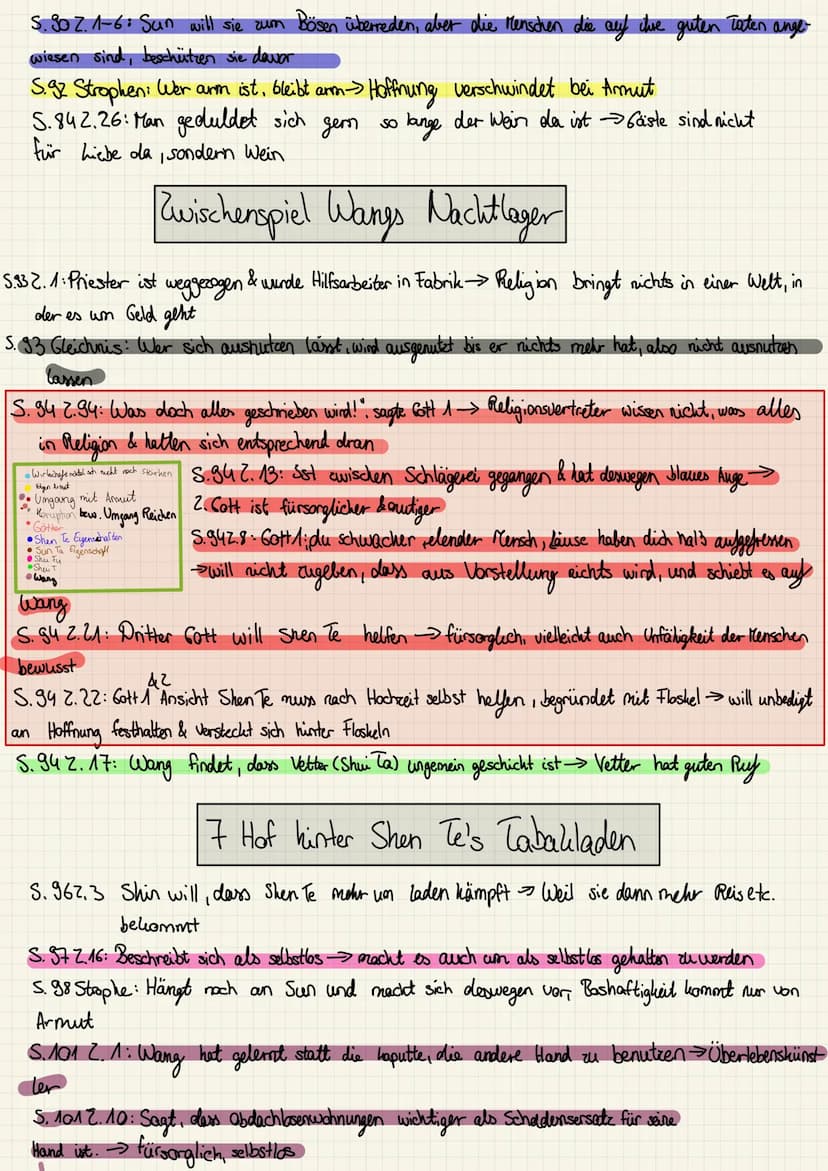 S.90 Z.1-6: Sun will sie zum Bösen überreden, aber die Menschen die auf ihre guten Taten ange-
wiesen sind, beschützen sie davor
S.92 Strophen: Wer arm ist, bleibt arm → Hoffnung verschwindet bei Armut
S.84 Z.26: Man geduldet sich gern so lange der Wein da ist → Gäste sind nicht
für Liebe da, sondern Wein
Zwischenspiel Wangs Nachtlager
S.93 Z.1: Priester ist weggezogen & wurde Hilfsarbeiter in Fabrik → Religion bringt nichts in einer Welt, in
der es um Geld geht
S.93 Gleichnis: Wer sich ausnutzen lässt, wird ausgenutzt bis er nichts mehr hat, also nicht ausnutzen
lassen
S.94 Z.94: Was doch alles geschrieben wird!", sagte Gott 1 → Religionsvertreter wissen nicht, was alles
in Religion & halten sich entsprechend dran
S.94 Z.13: Ist zwischen Schlägerei gegangen & hat deswegen blaues Auge →
2. Gott ist fürsorglicher & mutiger
S.94 Z.8: Gott 1: du schwacher, elender Mensch, Läuse haben dich halb aufgefressen
→ will nicht zugeben, dass aus Vorstellung nichts wird, und schiebt es auf
Wang
Umgang mit Armut
Korruption bzw. Umgang Reichen
Götter
Shen Te Eigenschaften
Sun Ta Eigenschaft
Shu Fu
Shui T
Wang
S.94 Z.21: Dritter Gott will Shen Te helfen → fürsorglich, vielleicht auch Unfähigkeit der Menschen
bewusst
S.94 Z.22: Gott 1 &2 Ansicht Shen Te muss nach Hochzeit selbst helfen, begründet mit Floskel → will unbedigt
an Hoffnung festhalten & versteckt sich hinter Floskeln
S.94 Z.17: Wang findet, dass Vetter (Shui Ta) ungemein geschickt ist → Vetter hat guten Ruf
7 Hof hinter Shen Te's Tabakladen
S.96 Z.3 Shin will, dass Shen Te mehr um Laden kämpft → Weil sie dann mehr Reis etc.
bekommt
S.97 Z.16: Beschreibt sich als selbstlos → macht es auch um als selbstlos gehalten zu werden
S.98 Strophe: Hängt noch an Sun und macht sich deswegen vor, Boshaftigkeit kommt nur von
Armut
S.101 Z.1: Wang hat gelernt statt die kaputte, die andere Hand zu benutzen → Überlebenskünst-
ler
S.101 Z.10: Sagt, dass Obdachlosenwohnungen wichtiger als Schadensersatz für seine
Hand ist. → fürsorglich, selbstlos